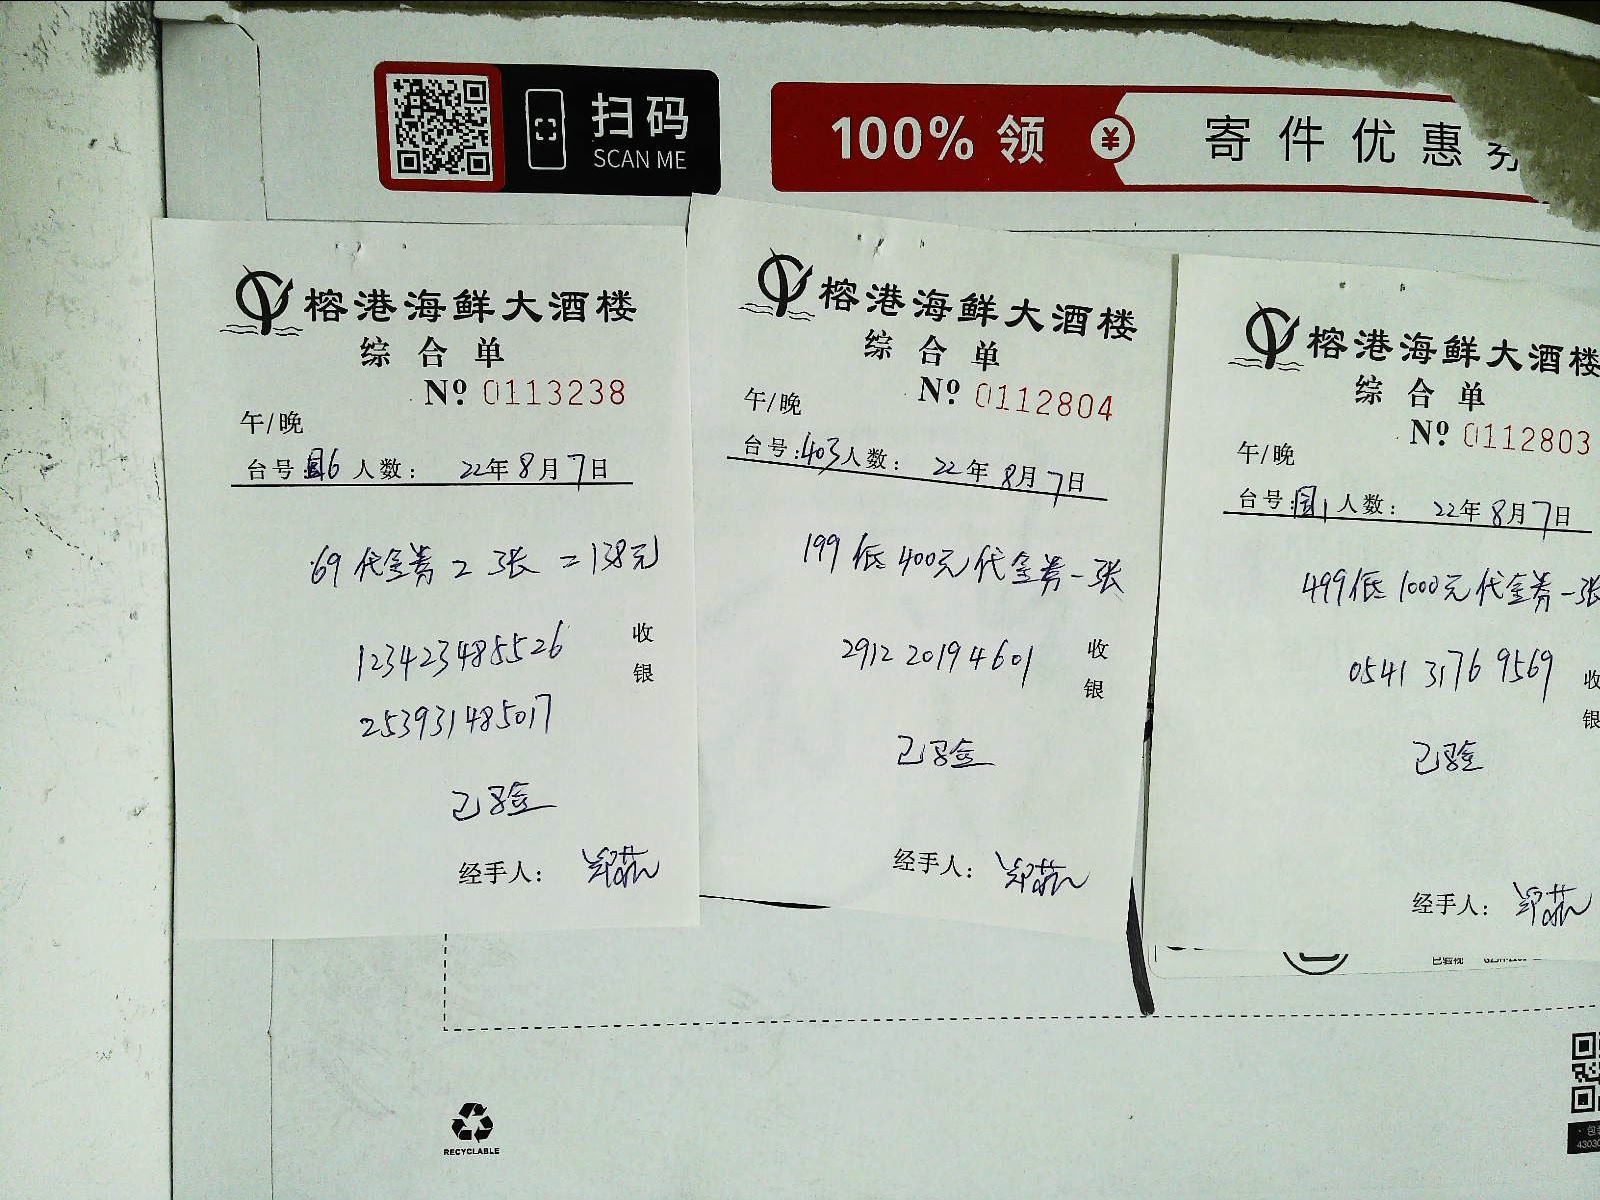 扫码
SCAN ME
100% 领 ¥ 寄件优惠券
榕港海鲜大酒楼
综合单
Nº 0113238
午/晚
台号: 6 人数: 22年8月7日
69代金券 2张 = 138元
123423485526
253931485017
收银
已验
经手人:
榕港海鲜大酒楼
综合单
Nº 0112804
午/晚
台号: 403 人数: 22年8月7日
199低400元代金券一张
2912 2019 4601
收银
已验
经手人:
榕港海鲜大酒楼
综合单
Nº 0112803
午/晚
台号: 1 人数: 22年8月7日
499低1000元代金券一张
0541 3176 9569
收银
已验
经手人:
RECYCLABLE